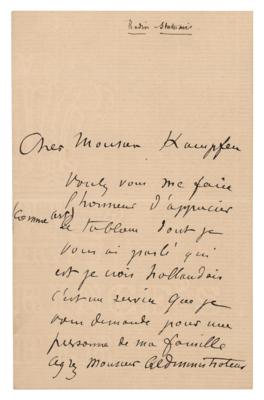 Rodin Statuaire
Cher Monsieur Kampfen
Voulez vous me faire
l'honneur d'apprécier
(comme art)
le tableau dont je
vous ai parlé qui
est je crois hollandais
c'est un service que je
vous demande pour une
personne de ma famille
agréez Monsieur l'Administrateur